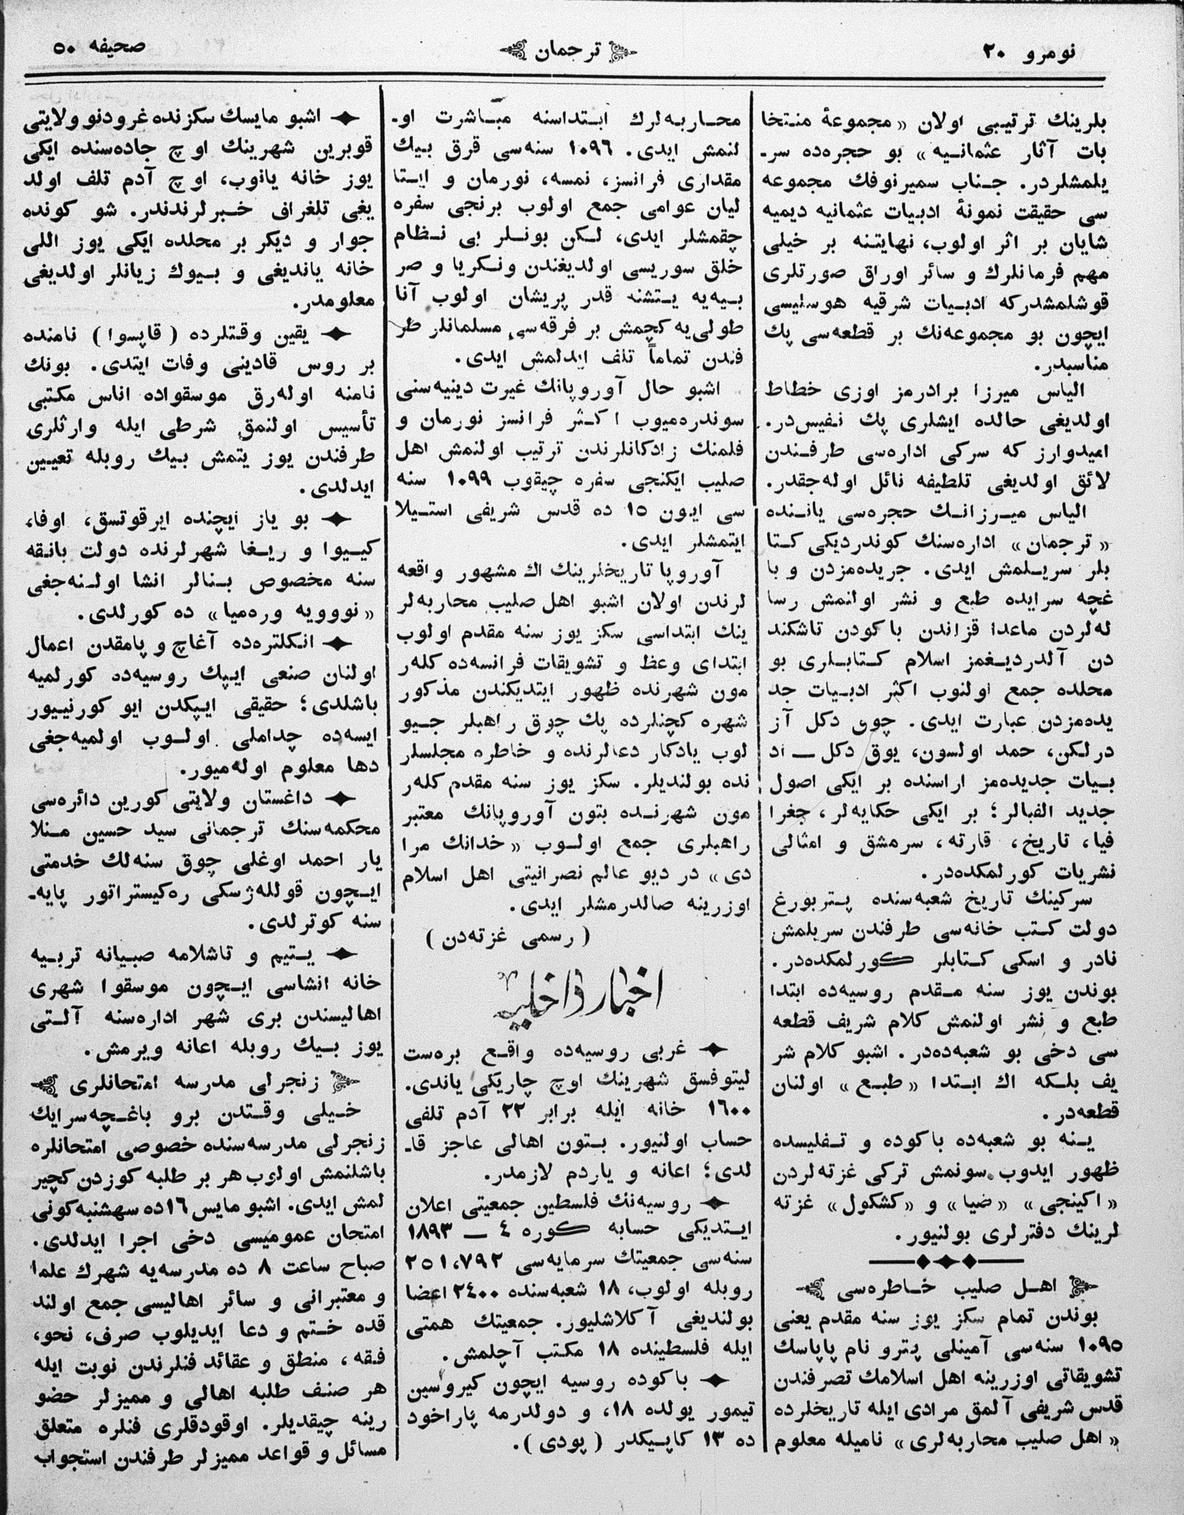 نومرو ٢٠
ترجمان
صحيفه ٥٠
بلرينك ترتيبى اولان «مجموعۀ منتخا
بات آثار عثمانيه» بو حجره‌ده سر‍ـ
يلمشلردر. جناب سميرنوفك مجموعه
سى حقيقت نمونۀ ادبيات عثمانيه ديميه
شايان بر اثر اولوب، نهايتنه بر خيلى
مهم فرمانلرك و سائر اوراق صورتلرى
قوشلمشدركه ادبيات شرقيه هوسليسى
ايچون بو مجموعه‌نك بر قطعه‌سى پك
مناسبدر.
الياس ميرزا برادرمز اوزى خطاط
اولديغى حالده ايشلرى پك نفيس‌در.
اميدوارز كه سركى اداره‌سى طرفندن
لائق اولديغى تلطيفه نائل اوله‌جقدر.
الياس ميرزانك حجره‌سى ياننده
«ترجمان» اداره‌سنك كوندرديكى كتا
بلر سريلمش ايدى. جريده‌مزدن و با
غچه سرايده طبع و نشر اولنمش رسا
له‌لردن ماعدا قزاندن باكودن تاشكند
دن آلدرديغمز اسلام كتابلرى بو
محلده جمع اولنوب اكثر ادبيات جد
يده‌مزدن عبارت ايدى. چوق دكل آز
درلكن، حمد اولسون، يوق دكل — اد
بيات جديده‌مز اراسنده بر ايكى اصول
جديد الفبالر؛ بر ايكى حكايه‌لر، جغرا
فيا، تاريخ، قارته، سرمشق و امثالى
نشريات كورلمكده‌در.
سركينك تاريخ شعبه‌سنده پتربورغ
دولت كتب خانه‌سى طرفندن سريلمش
نادر و اسكى كتابلر كورلمكده‌در.
بوندن يوز سنه مقدم روسيه‌ده ابتدا
طبع و نشر اولنمش كلام شريف قطعه
سى دخى بو شعبه‌ده‌در. اشبو كلام شر
يف بلكه اك ابتدا «طبع» اولنان
قطعه‌در.
ينه بو شعبه‌ده باكوده و تفليسده
ظهور ايدوب سونمش تركى غزته‌لردن
«اكينجى» «ضيا» و «كشكول» غزته
لرينك دفترلرى بولنيور.
اهل صليب خاطره‌سى
بوندن تمام سكز يوز سنه مقدم يعنى
١٠٩٥ سنه‌سى آمينلى پترو نام پاپاسك
تشويقاتى اوزرينه اهل اسلامك تصرفندن
قدس شريفى آلمق مرادى ايله تاريخلرده
«اهل صليب محاربه‌لرى» ناميله معلوم
محاربه‌لرك ابتداسنه مباشرت او‍ـ
لنمش ايدى. ١٠٩٦ سنه‌سى قرق بيك
مقدارى فرانسز، نمسه، نورمان و ايتا
ليان عوامى جمع اولوب برنجى سفره
چقمشلر ايدى، لكن بونلر بى نظام
خلق سوريسى اولديغندن ونكريا و صر
بيه‌يه يتشنه قدر پريشان اولوب آنا
طولى‌يه كچمش بر فرقه‌سى مسلمانلر طر
فندن تماماً تلف ايدلمش ايدى.
اشبو حال آوروپانك غيرت دينيه‌سنى
سوندره‌ميوب اكثر فرانسز نورمان و
فلمنك زادكانلرندن ترتيب اولنمش اهل
صليب ايكنجى سفره چيقوب ١٠٩٩ سنه
سى ايون ١٥ ده قدس شريفى استيلا
ايتمشلر ايدى.
آوروپا تاريخلرينك اك مشهور واقعه
لرندن اولان اشبو اهل صليب محاربه‌لر
ينك ابتداسى سكز يوز سنه مقدم اولوب
ابتداى وعظ و تشويقات فرانسه‌ده كله‌ر
مون شهرنده ظهور ايتديكندن مذكور
شهره كچنلرده پك چوق راهبلر جيو
لوب يادكار دعالرنده و خاطره مجلسلر
نده بولنديلر. سكز يوز سنه مقدم كله‌ر
مون شهرنده بتون آوروپانك معتبر
راهبلرى جمع اولوب «خدانك مرا
دى» در ديو عالم نصرانيتى اهل اسلام
اوزرينه صالدرمشلر ايدى.
(رسمى غزته‌دن)
اخبار داخليه
غربى روسيه‌ده واقع بره‌ست
ليتوفسق شهرينك اوچ چاريكى ياندى.
١٦٠٠ خانه ايله برابر ٢٢ آدم تلفى
حساب اولنيور. بتون اهالى عاجز قا‍ـ
لدى؛ اعانه و ياردم لازمدر.
روسيه‌نك فلسطين جمعيتى اعلان
ايتديكى حسابه كوره ٤ — ١٨٩٣
سنه‌سى جمعيتك سرمايه‌سى ٢٥١،٧٩٢
روبله اولوب، ١٨ شعبه‌سنده ٢٤٠٠ اعضا
بولنديغى آكلاشليور. جمعيتك همتى
ايله فلسطينده ١٨ مكتب آچلمش.
باكوده روسيه ايچون كيروسين
تيمور يولده ١٨، و دولدرمه پاراخود
ده ١٣ كاپيكدر (پودى).
اشبو مايسك سكزنده غرودنو ولايتى
قوبرين شهرينك اوچ جاده‌سنده ايكى
يوز خانه يانوب، اوچ آدم تلف اولد
يغى تلغراف خبرلرندندر. شو كونده
جوار و ديكر بر محلده ايكى يوز اللى
خانه يانديغى و بيوك زيانلر اولديغى
معلومدر.
يقين وقتلرده (قاپسوا) نامنده
بر روس قادينى وفات ايتدى. بونك
نامنه اوله‌رق موسقواده اناس مكتبى
تأسيس اولنمق شرطى ايله وارثلرى
طرفندن يوز يتمش بيك روبله تعيين
ايدلدى.
بو ياز ايچنده ايرقوتسق، اوفا،
كيوا و ريغا شهرلرنده دولت بانقه
سنه مخصوص بنالر انشا اولنه‌جغى
«نووويه وره‌ميا» ده كورلدى.
انكلتره‌ده آغاچ و پامقدن اعمال
اولنان صنعى ايپك روسيه‌ده كورلميه
باشلدى؛ حقيقى ايپكدن ايو كورنيور
ايسه‌ده چداملى اولوب اولميه‌جغى
دها معلوم اوله‌ميور.
داغستان ولايتى كورين دائره‌سى
محكمه‌سنك ترجمانى سيد حسين منلا
يار احمد اوغلى چوق سنه‌لك خدمتى
ايچون قولله‌ژسكى ره‌كيستراتور پايه‍ـ
سنه كوترلدى.
يتيم و تاشلامه صبيانه تربيه
خانه انشاسى ايچون موسقوا شهرى
اهاليسندن برى شهر اداره‌سنه آلتى
يوز بيك روبله اعانه ويرمش.
زنجرلى مدرسه امتحانلرى
خيلى وقتدن برو باغچه‌سرايك
زنجرلى مدرسه‌سنده خصوصى امتحانلره
باشلنمش اولوب هر بر طلبه كوزدن كچير
لمش ايدى. اشبو مايس ١٦ ده سه‌شنبه‌كونى
امتحان عموميسى دخى اجرا ايدلدى.
صباح ساعت ٨ ده مدرسه‌يه شهرك علما
و معتبرانى و سائر اهاليسى جمع اولند
قده ختم و دعا ايديلوب صرف، نحو،
فقه، منطق و عقائد فنلرندن نوبت ايله
هر صنف طلبه اهالى و مميزلر حضو
رينه چيقديلر. اوقودقلرى فنلره متعلق
مسائل و قواعد مميزلر طرفندن استجواب